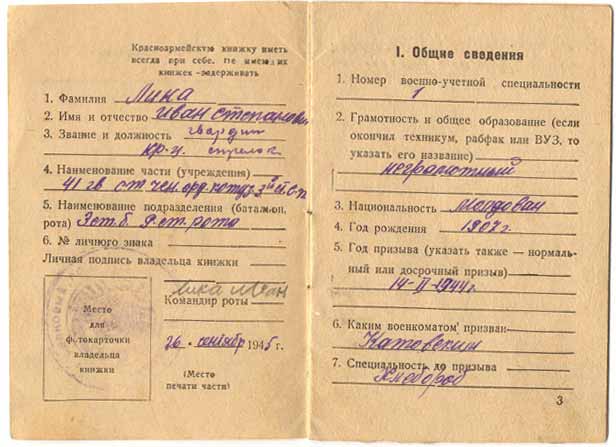 Красноармейскую книжку иметь
всегда при себе. Не имеющих
книжек—задерживать
1. Фамилия Лика
2. Имя и отчество Иван Степанович
3. Звание и должность гвардии
кр-ц. стрелок
4. Наименование части (учреждения)
41 гв
5. Наименование подразделения (батальон,
рота) 3 ст. б. 9 ст. рота
6. № личного знака
Личная подпись владельца книжки
Лика Иван
Командир роты
Место
для
фотокарточки
владельца
книжки
26 сентябр 1945 г.
(Место
печати части)
I. Общие сведения
1. Номер военно-учетной специальности
1
2. Грамотность и общее образование (если
окончил техникум, рабфак или ВУЗ, то
указать его название)
неграмотный
3. Национальность молдован
4. Год рождения 1907 г.
5. Год призыва (указать также — нормаль-
ный или досрочный призыв)
14-II-1944 г.
6. Каким военкоматом призван
Котовским
7. Специальность до призыва
Хлебороб
3